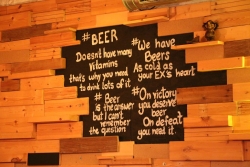 #BEER
Doesnt have many
Vitamins
thats why you need
to drink lots of it
#We have
Beers
As cold as
your EX's heart
#
Beer
is the answer
but I can't
remember
the question
#On victory
you deserve
beer
On defeat
you need it.